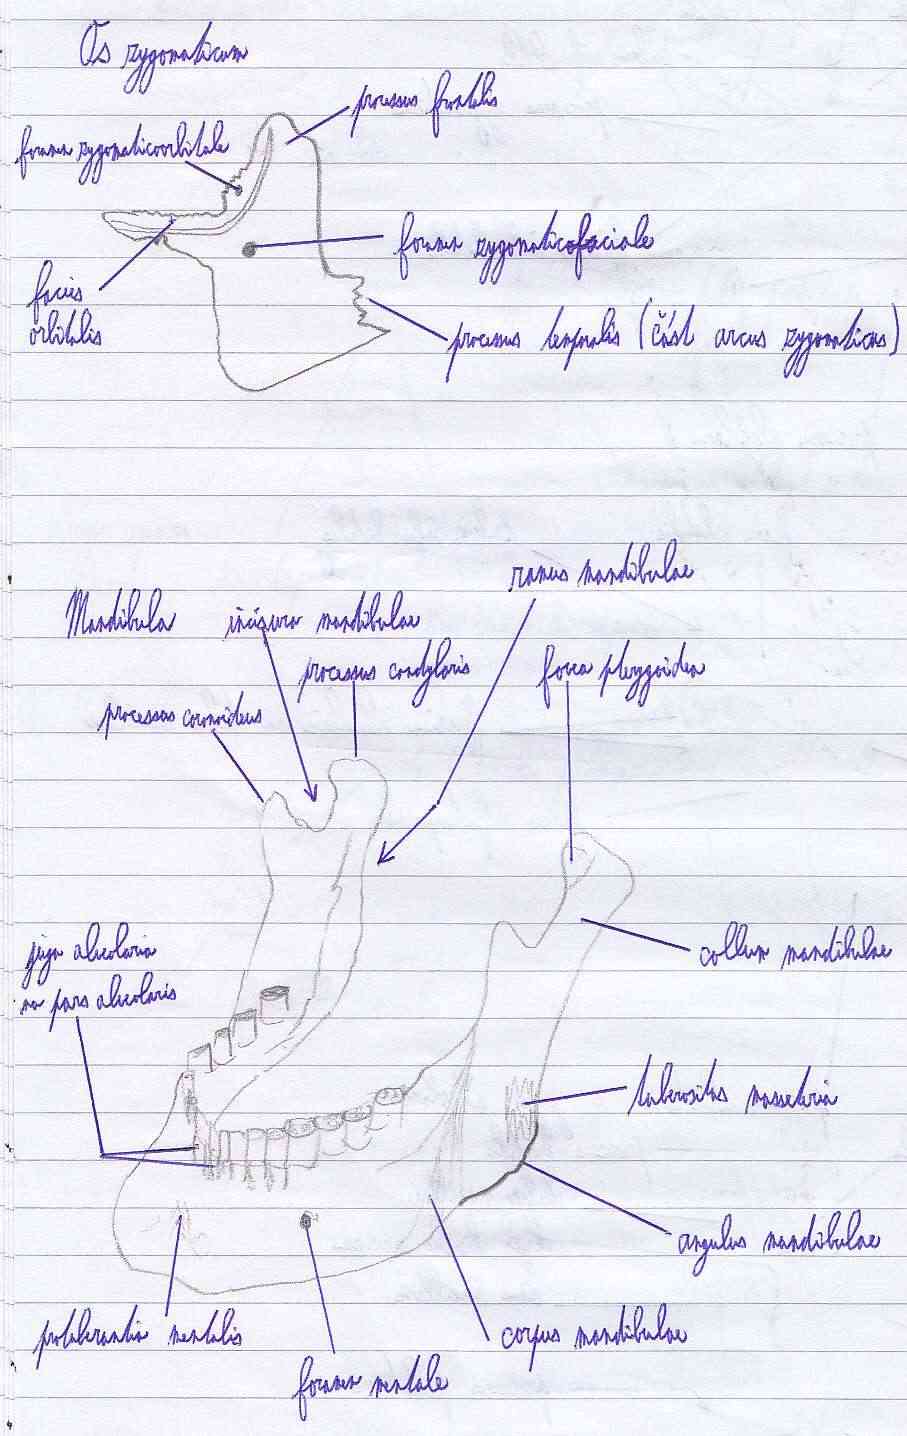 Os zygomaticum
processus frontalis
foramen zygomaticoorbitale
foramen zygomaticofaciale
facies
orbitalis
processus temporalis (část arcus zygomaticus)
ramus mandibulae
Mandibula
incisura mandibulae
processus condylaris
fovea pterygoidea
processus coronoideus
juga alveolaria
na pars alveolaris
collum mandibulae
tuberositas masseteria
angulus mandibulae
protuberantia mentalis
corpus mandibulae
foramen mentale